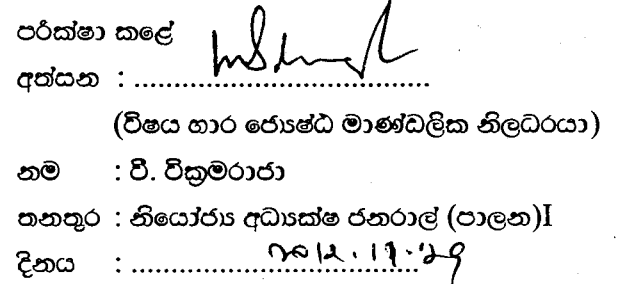 පරීක්ෂා කළේ
අත්සන : ........................................
(විෂය භාර ජ්‍යෙෂ්ඨ මාණ්ඩලික නිලධරයා)
නම : වී. වික්‍රමරාජා
තනතුර : නියෝජ්‍ය අධ්‍යක්ෂ ජනරාල් (පාලන)I
දිනය : ........................................